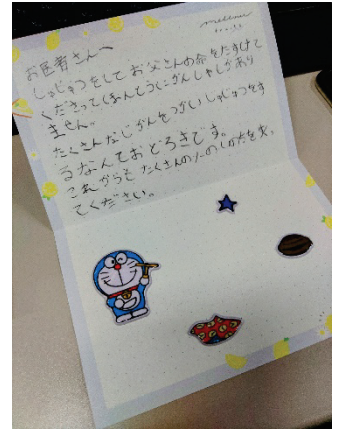 お医者さんへ
しゅじゅつをしてお父さんの命をたすけて
くださってほんとうにかんしゃしかあり
ません。
たくさんなじかんをつかいしゅじゅつをす
るなんておどろきです。
これからもたくさんの人の
てください。